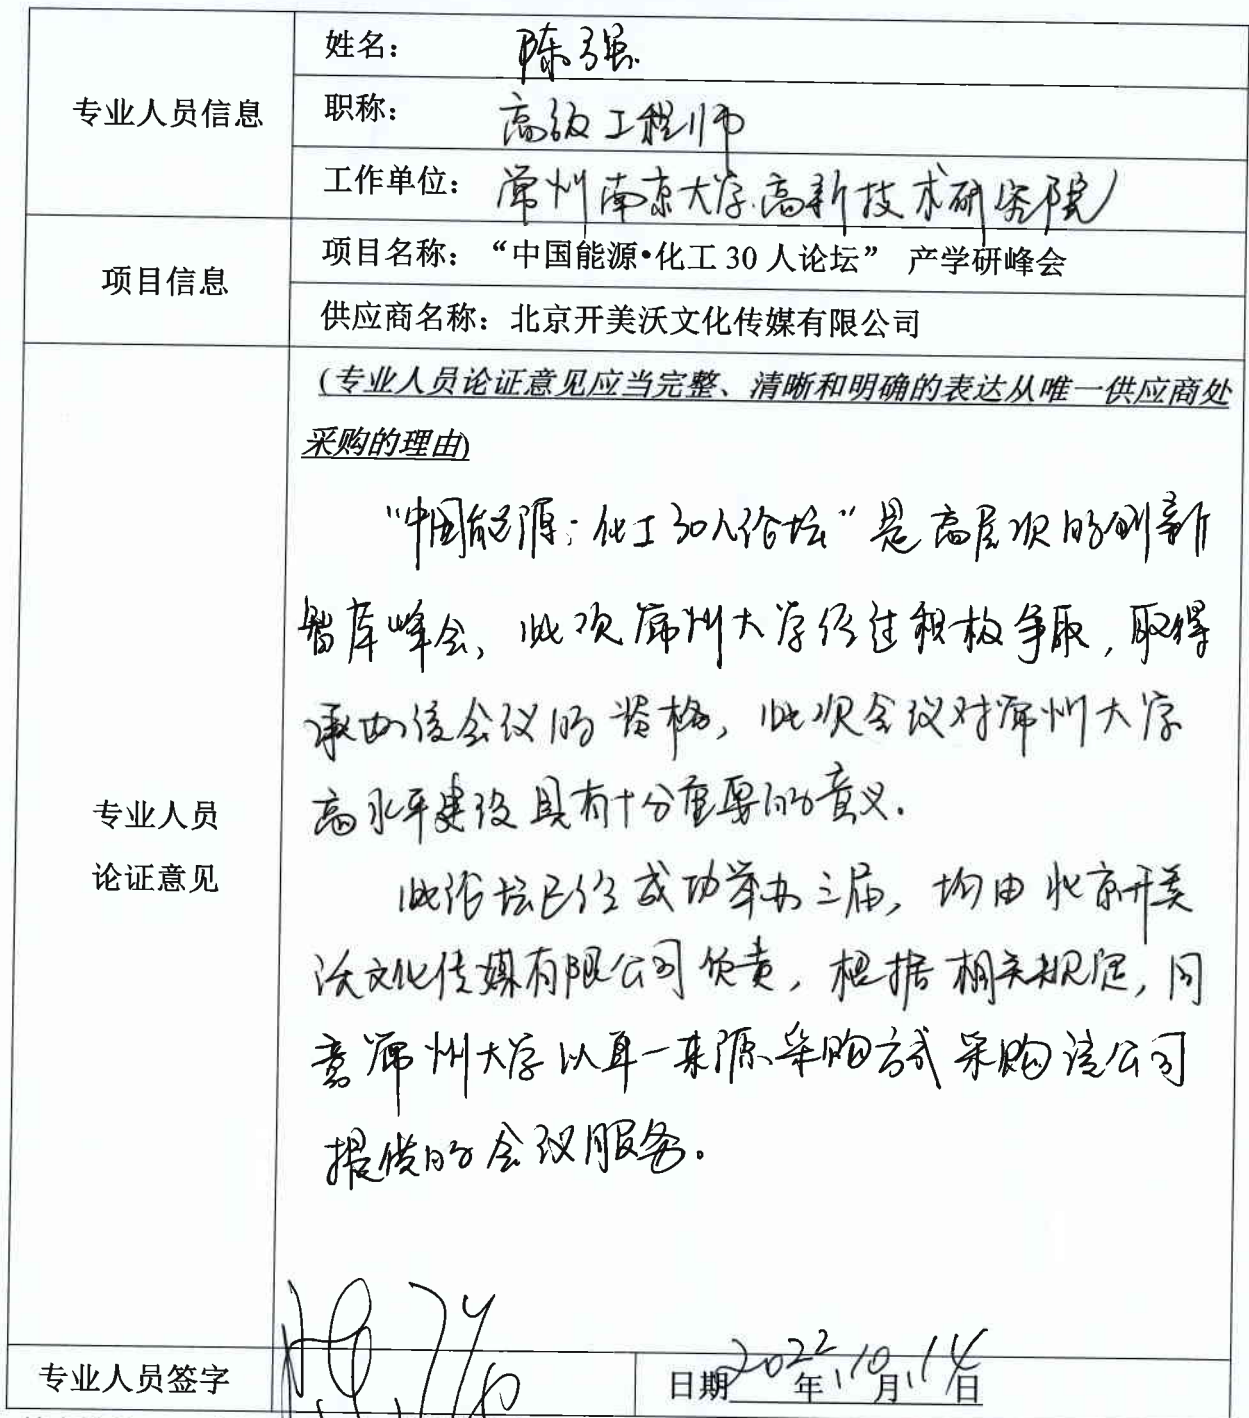 专业人员信息
姓名： 陈强
职称： 高级工程师
工作单位： 常州南京大学高新技术研究院
项目信息
项目名称：“中国能源•化工 30 人论坛” 产学研峰会
供应商名称：北京开美沃文化传媒有限公司
专业人员
论证意见
(专业人员论证意见应当完整、清晰和明确的表达从唯一供应商处
采购的理由)
“中国能源·化工30人论坛”是高层次的创新
智库峰会，此次常州大学经过积极争取，取得
承办该会议的资格，此次会议对常州大学
高水平建设具有十分重要的意义.
此论坛已经成功举办三届，均由北京开美
沃文化传媒有限公司负责，根据相关规定，同
意常州大学以单一来源采购方式采购该公司
提供的会议服务。
专业人员签字
日期 2022年10月14日